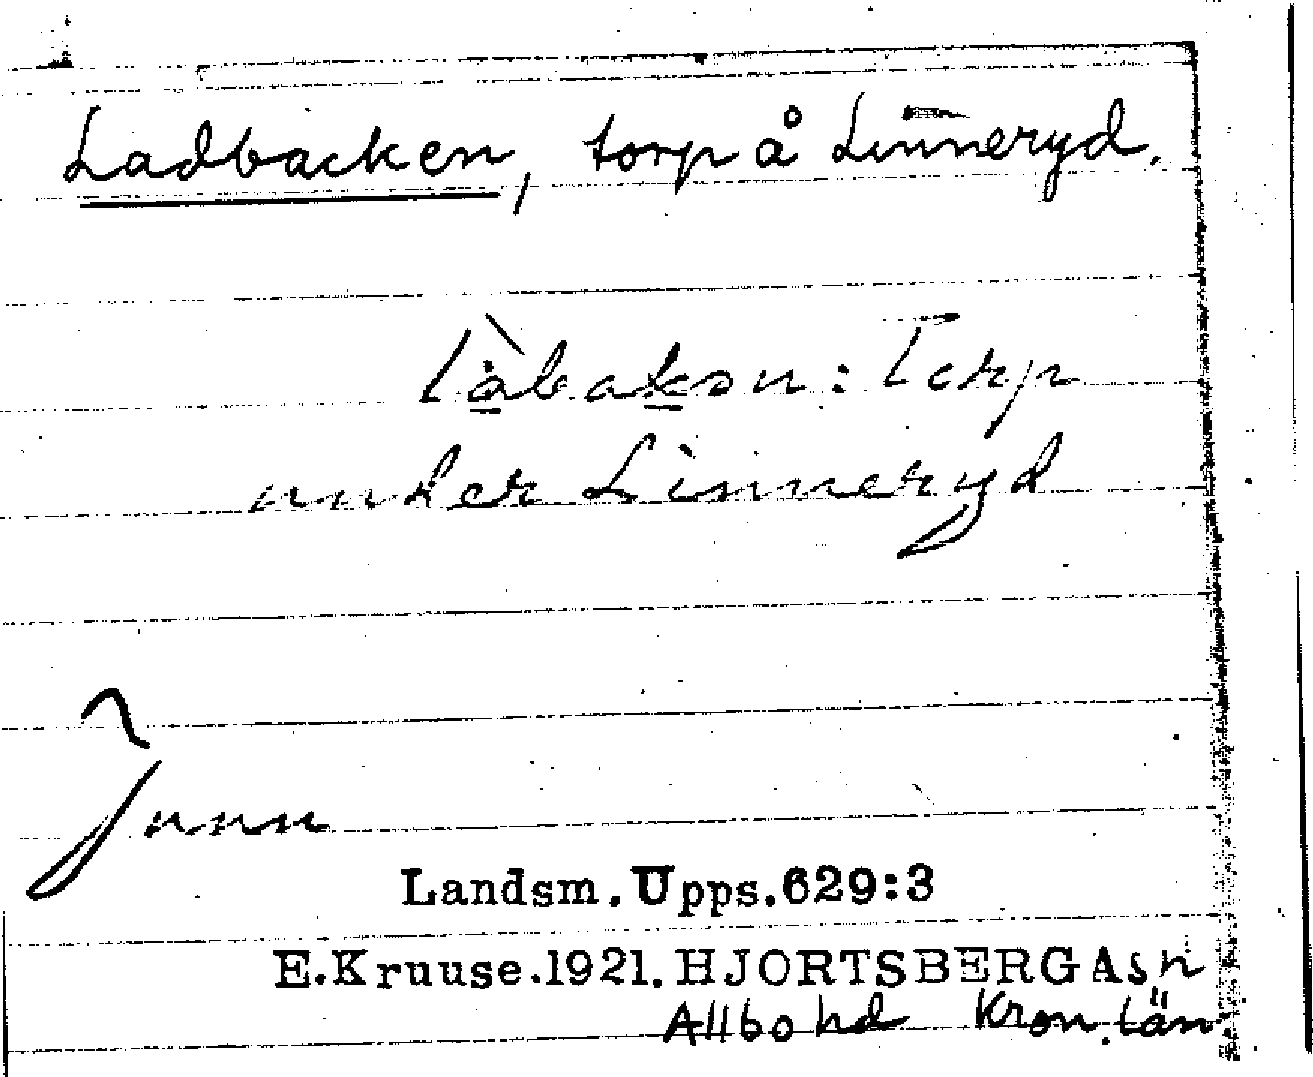 Ladbacken, torp å Linneryd.
làbakən: Torp
under Linneryd
Junu
Landsm. Upps. 629:3
E. Kruuse. 1921. HJORTSBERGA sn
Allbo hd Kron. län.